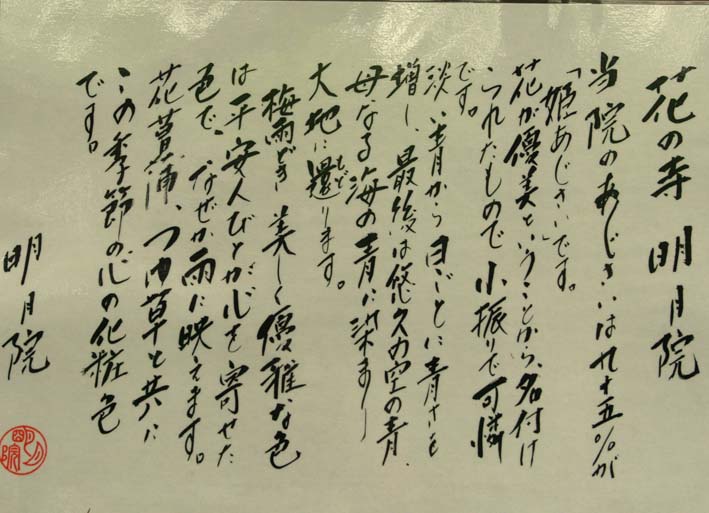 花の寺 明月院
当院のあじさいは九十五%が
「姫あじさい」です。
花が優美ということから、名付け
られたもので小振りで可憐
です。
淡い青から日ごとに青さを
増し、最後は悠久の空の青、
母なる海の青に染まり
大地に還ります。
もど
梅雨どき 美しく優雅な色
は平安人びとが心を寄せた
色で、なぜか雨に映えます。
花菖蒲、つゆ草と共に
この季節の心の化粧色
です。
明月院